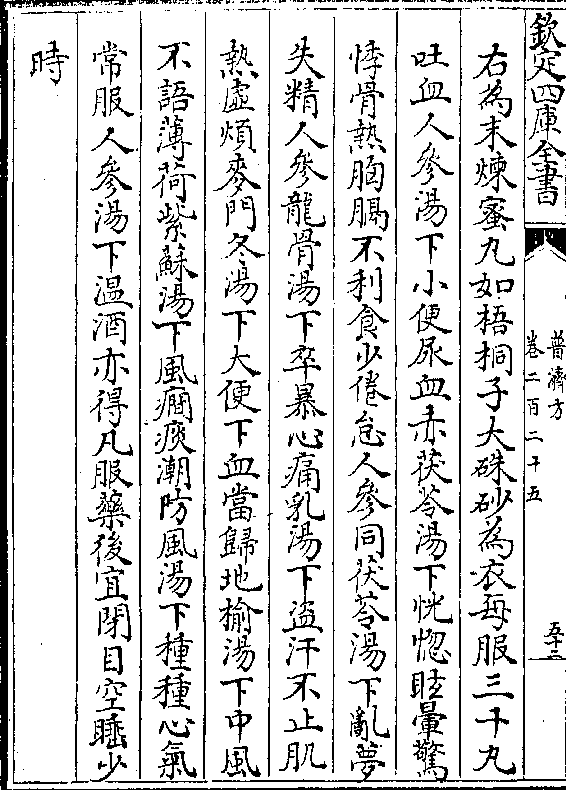 欽定四庫全書
普濟方
卷二百二十五
五十二
右為末煉蜜丸如梧桐子大硃砂為衣每服三十丸
吐血人參湯下小便尿血赤茯苓湯下恍惚眩暈驚
悸骨熱胸膈不利食少倦怠人參同茯苓湯下亂夢
失精人參龍骨湯下卒暴心痛乳湯下盜汗不止肌
熱虛煩麥門冬湯下大便下血當歸地榆湯下中風
不語薄荷紫蘇湯下風癇痰潮防風湯下種種心氣
常服人參湯下温酒亦得凡服藥後宜閉目空睡少
時